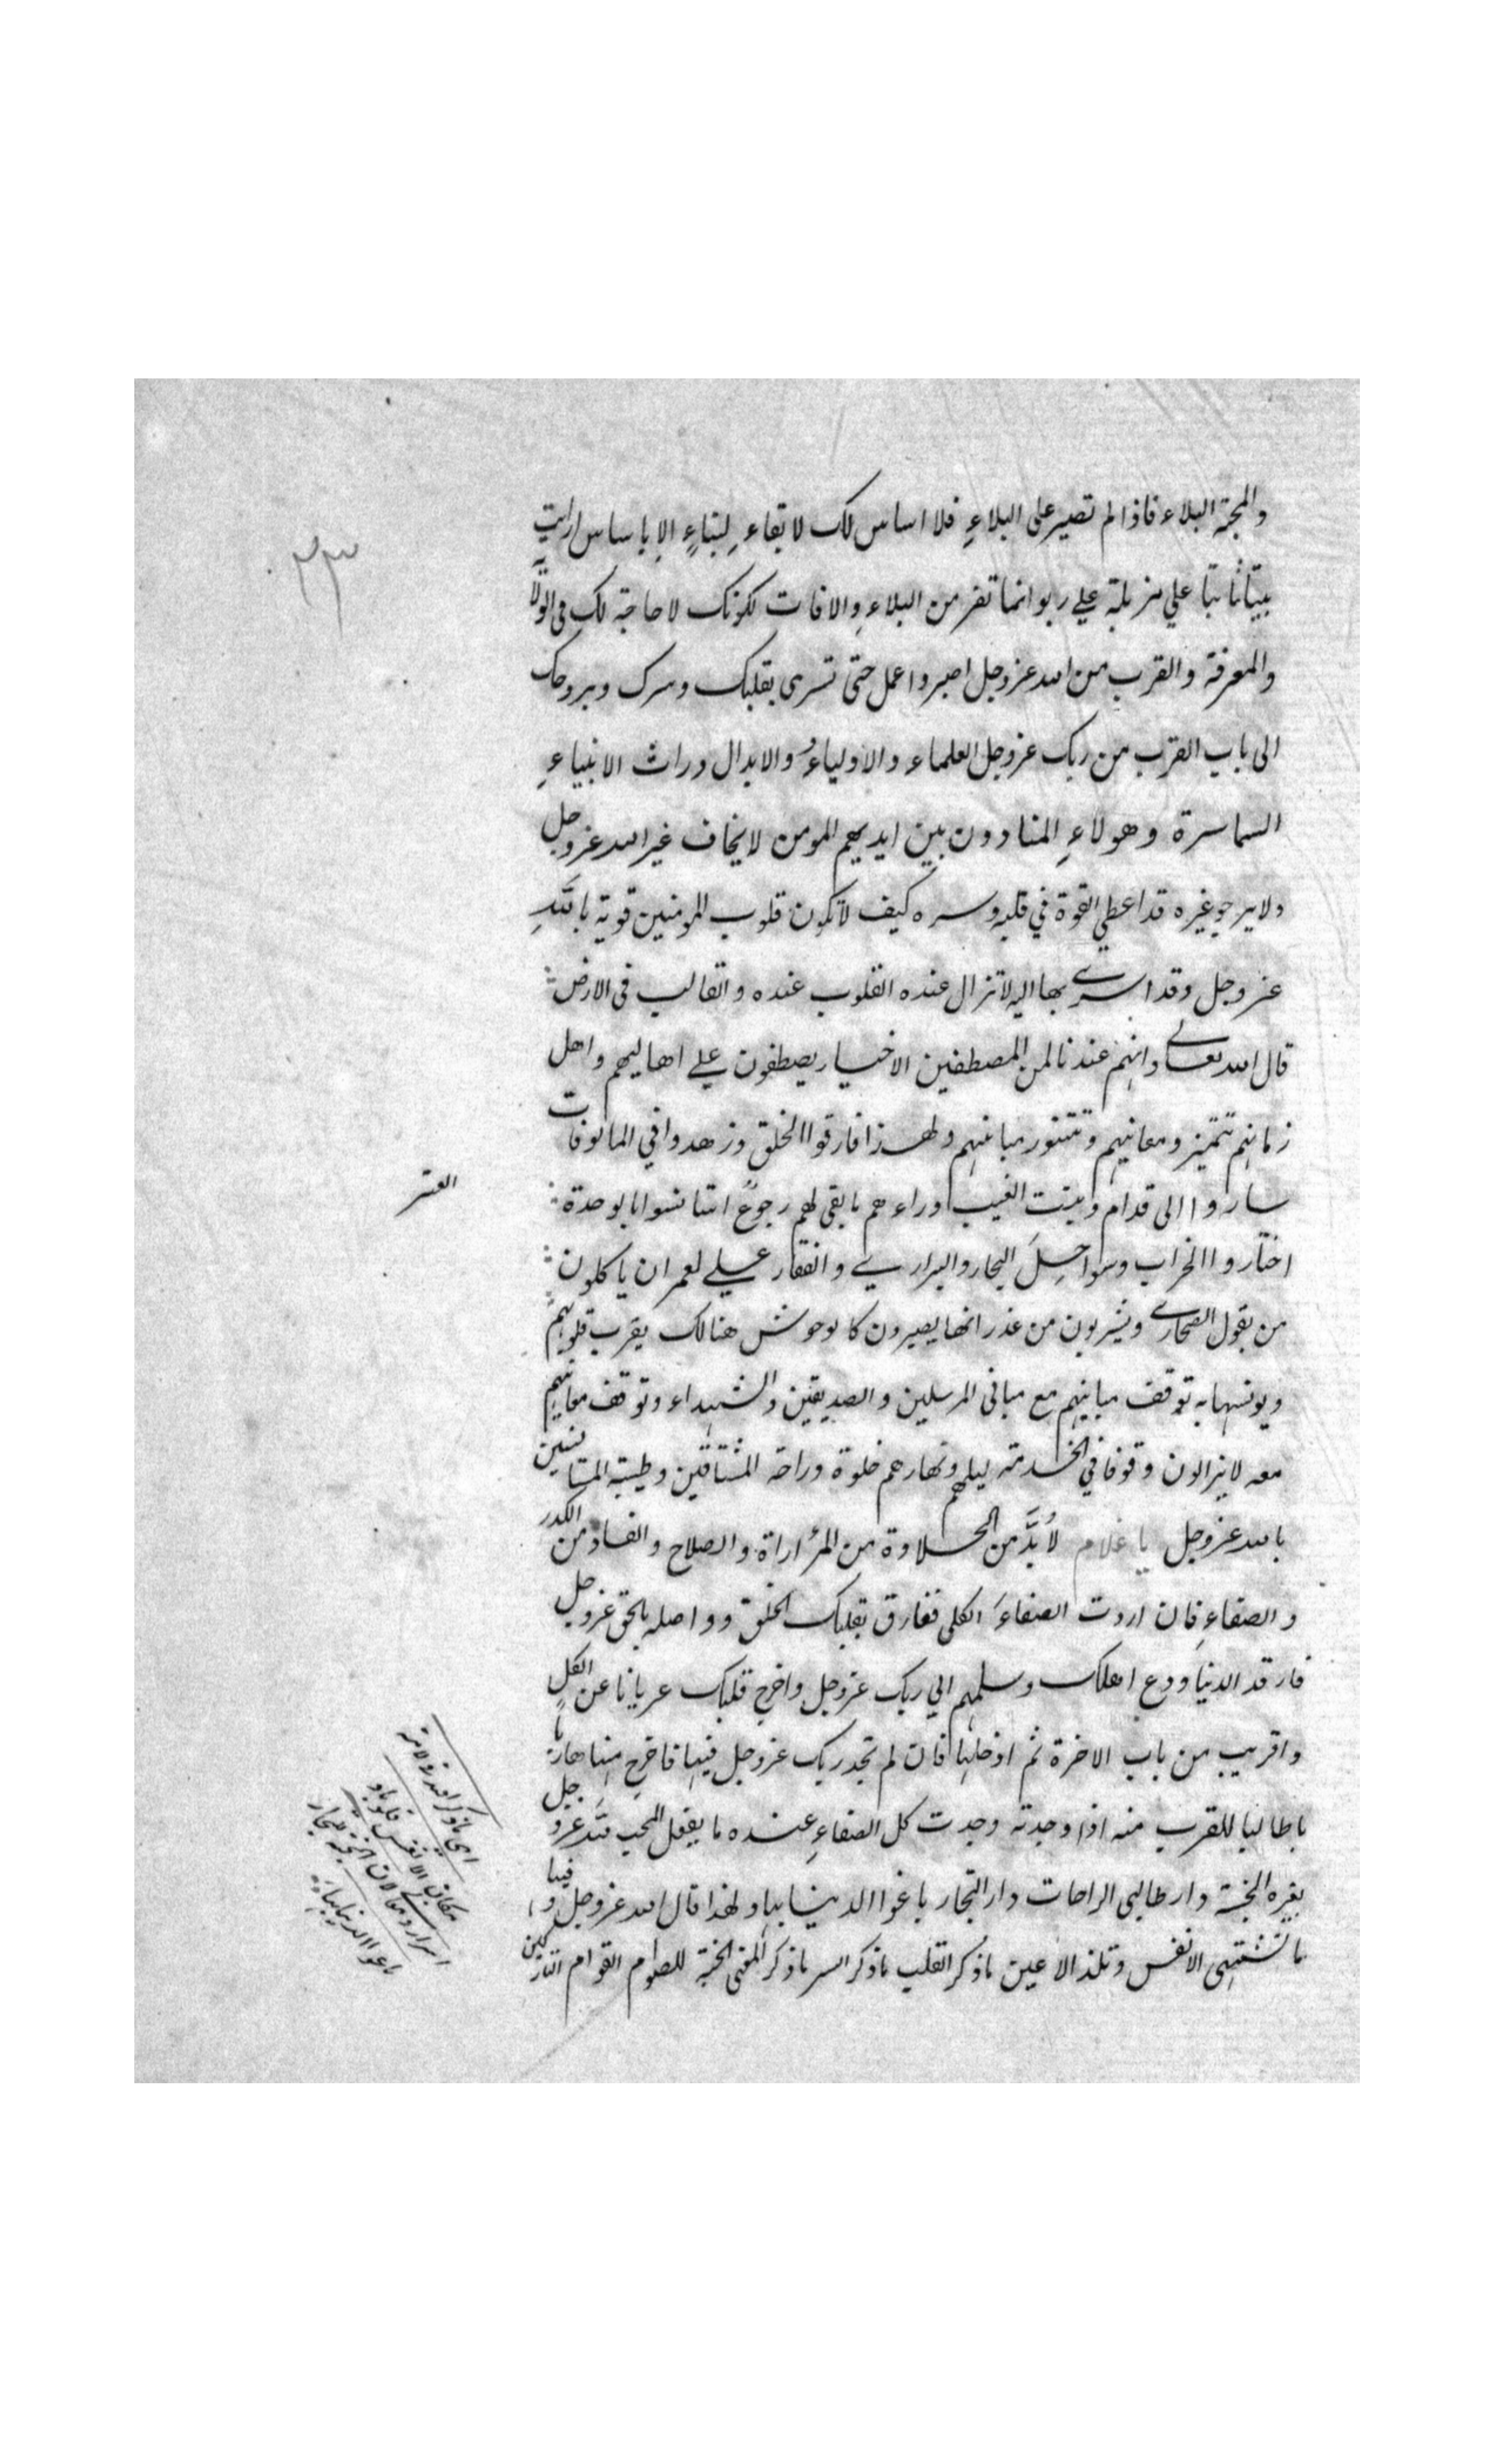 والمحبة البلاء فاذا لم تصبر على البلاءِ فلا اساس لك لا بقاءِ لبناءٍ الا باساس ارايت
بيتا ثابتا علي مزبلة علي ربو انما تفر من البلاءِ والافات لكونك لا حاجة لك فى الولا
والمعرفة والقرب من الله عز وجل اصبر واعمل حتى تسرى بقلبك وسرك وبروحك
الى باب القرب من ربك عز وجل العلماء والاولياءُ والابدال وراث الانبياءِ
السماسرة وهولاءِ المنادون بين ايديهم المومن لا يخاف غير الله عز وجل
ولا يرجو غيره قد اعطي القوة في قلبه وسره كيف لا تكون قلوب المومنين قوية باللهِ
عز وجل وقد اسري بها اليه لا تزال عنده القلوب عنده والقالب فى الارض
قال الله تعالى وانهم عندنا لمن المصطفين الاخيار يصطفون علي اهاليهم واهل
زمانهم تتميز ومعانيهم وتتنور مبانيهم ولهذا فارقوا الخلق وزهدوا في المالوفات
ساروا الى قدام وبيتت الغيب وراءهم ما بقى لهم رجوع استانسوا بالوحدة
اختاروا الخراب وسواحِلَ البحار والبراري والقفار علي لعمران ياكلون
من بقول الصحارى ويشربون من غدرانها يصيرون كالوحوش هنالك يقرب قلوبهم
ويونسها به توقف مبانيهم مع مبانى المرسلين والصديقين والشهداء وتوقف معانيهم
معه لا يزالون وقوفا في الخدمة ليلهم ونهارهم خلوة وراحة المشتاقين وطيبة المستانسين
بالله عز وجل يا غلام لا بدَّ من الحلاوة من المراراة والصلاح والفساد من الكدر
والصفاءِ فان اردت الصفاءَ الكلى ففارق بقلبك الخلق وواصله بالحق عز وجل
فارق الدنيا ودع اهلك وسلمهم الي ربك عز وجل واخرج قلبك عريانا عن الكلِ
واقرب من باب الاخرة ثم ادخلها فان لم تجد ربك عز وجل فيها فاخرج منها هاربا
يا طالبا للقرب منه اذا وجدته وجدت كل الصفاءِ عنده ما يفعل المحب لله عز وجل
بغيره الجنة دار طالبى الراحات دار التجار باعوا الدنيا بها ولهذا قال الله عز وجل وفيها
ما تشتهى الانفس وتلذ الاعين ما ذكر القلب ما ذكر السر ما ذكر المعنى الجنة للصوام القوام التاركين
٢٣